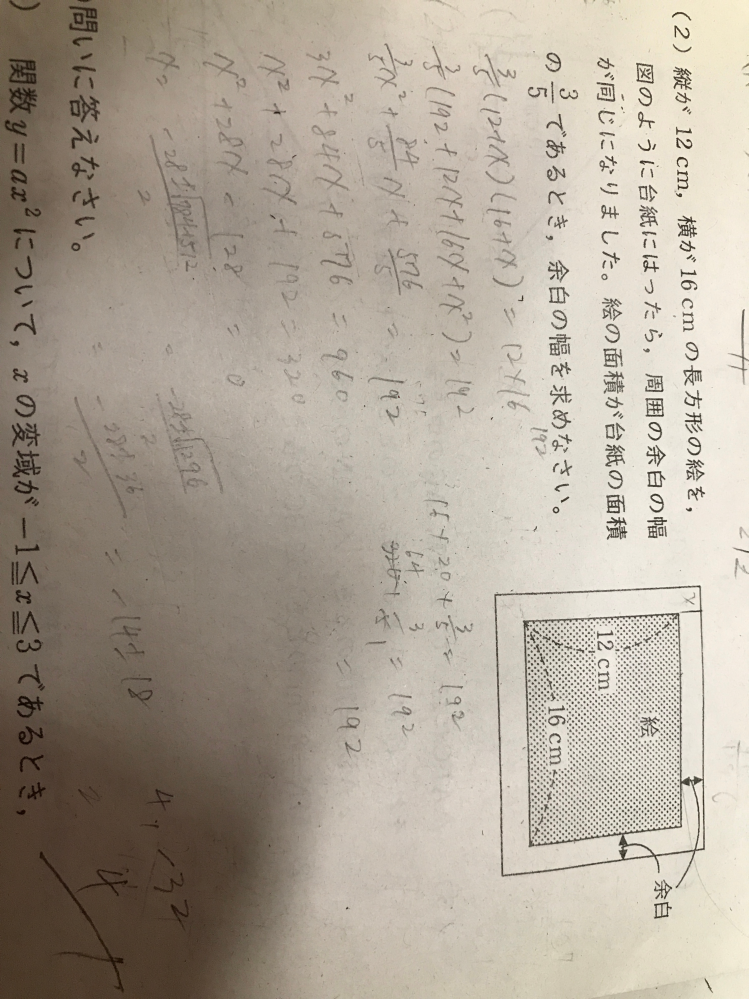 (2) 縦が 12 cm, 横が 16 cm の長方形の絵を,
図のように台紙にはったら, 周囲の余白の幅
が同じになりました。絵の面積が台紙の面積
の 3/5 であるとき, 余白の幅を求めなさい。
192
x
12 cm
絵
16 cm
余白
3/5 (12+x)(16+x) = 12×16
3/5 (192+12x+16x+x²) = 192
3/5 x² + 84/5 x + 576/5 = 192
3x² + 84x + 576 = 960
x² + 28x + 192 = 320
x² + 28x = 128 = 0
x =
= 192
64
= 192
= 192
= -14± 18
4, -32
4
問いに答えなさい。
関数 y=ax² について, x の変域が −1≦x≦3 であるとき,